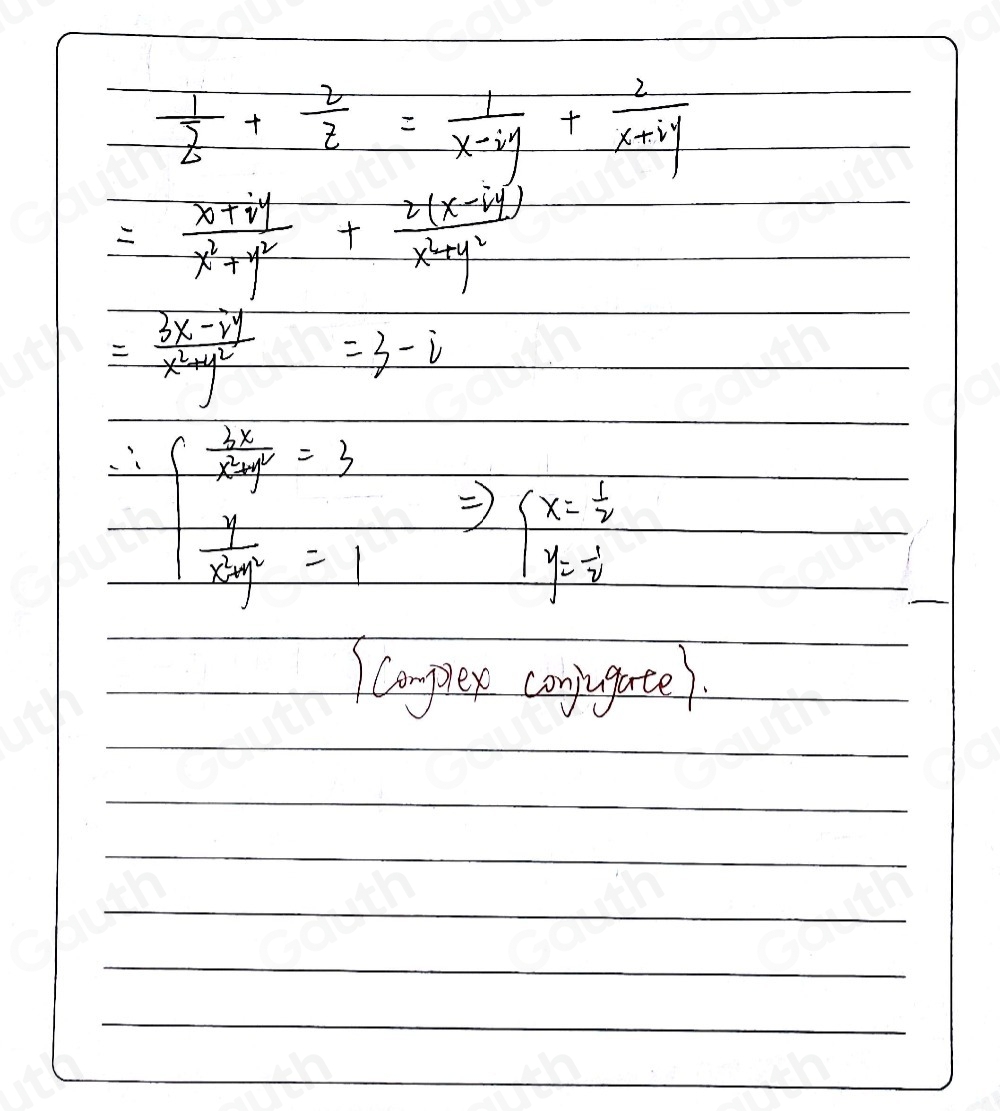 1/z̄ + 2/z = 1/(x-iy) + 2/(x+iy)
= (x+iy)/(x²+y²) + 2(x-iy)/(x²+y²)
= (3x-iy)/(x²+y²) = 3-i
∴ { 3x/(x²+y²) = 3
y/(x²+y²) = 1
⇒ { x=1/2
y=1/2
{Complex conjugate}.
Gauth